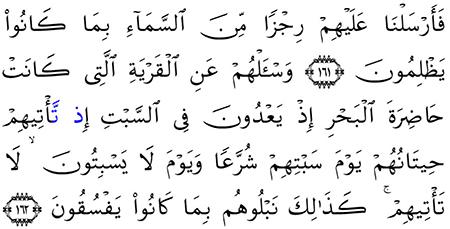 فَأَرْسَلْنَا عَلَيْهِمْ رِجْزًا مِّنَ ٱلسَّمَآءِ بِمَا كَانُوا۟
يَظْلِمُونَ ﴿١٦١﴾ وَسْـَٔلْهُمْ عَنِ ٱلْقَرْيَةِ ٱلَّتِى كَانَتْ
حَاضِرَةَ ٱلْبَحْرِ إِذْ يَعْدُونَ فِى ٱلسَّبْتِ إِذ تَّأْتِيهِمْ
حِيتَانُهُمْ يَوْمَ سَبْتِهِمْ شُرَّعًا وَيَوْمَ لَا يَسْبِتُونَ ۙ لَا
تَأْتِيهِمْ ۚ كَذَٰلِكَ نَبْلُوهُم بِمَا كَانُوا۟ يَفْسُقُونَ ﴿١٦٢﴾